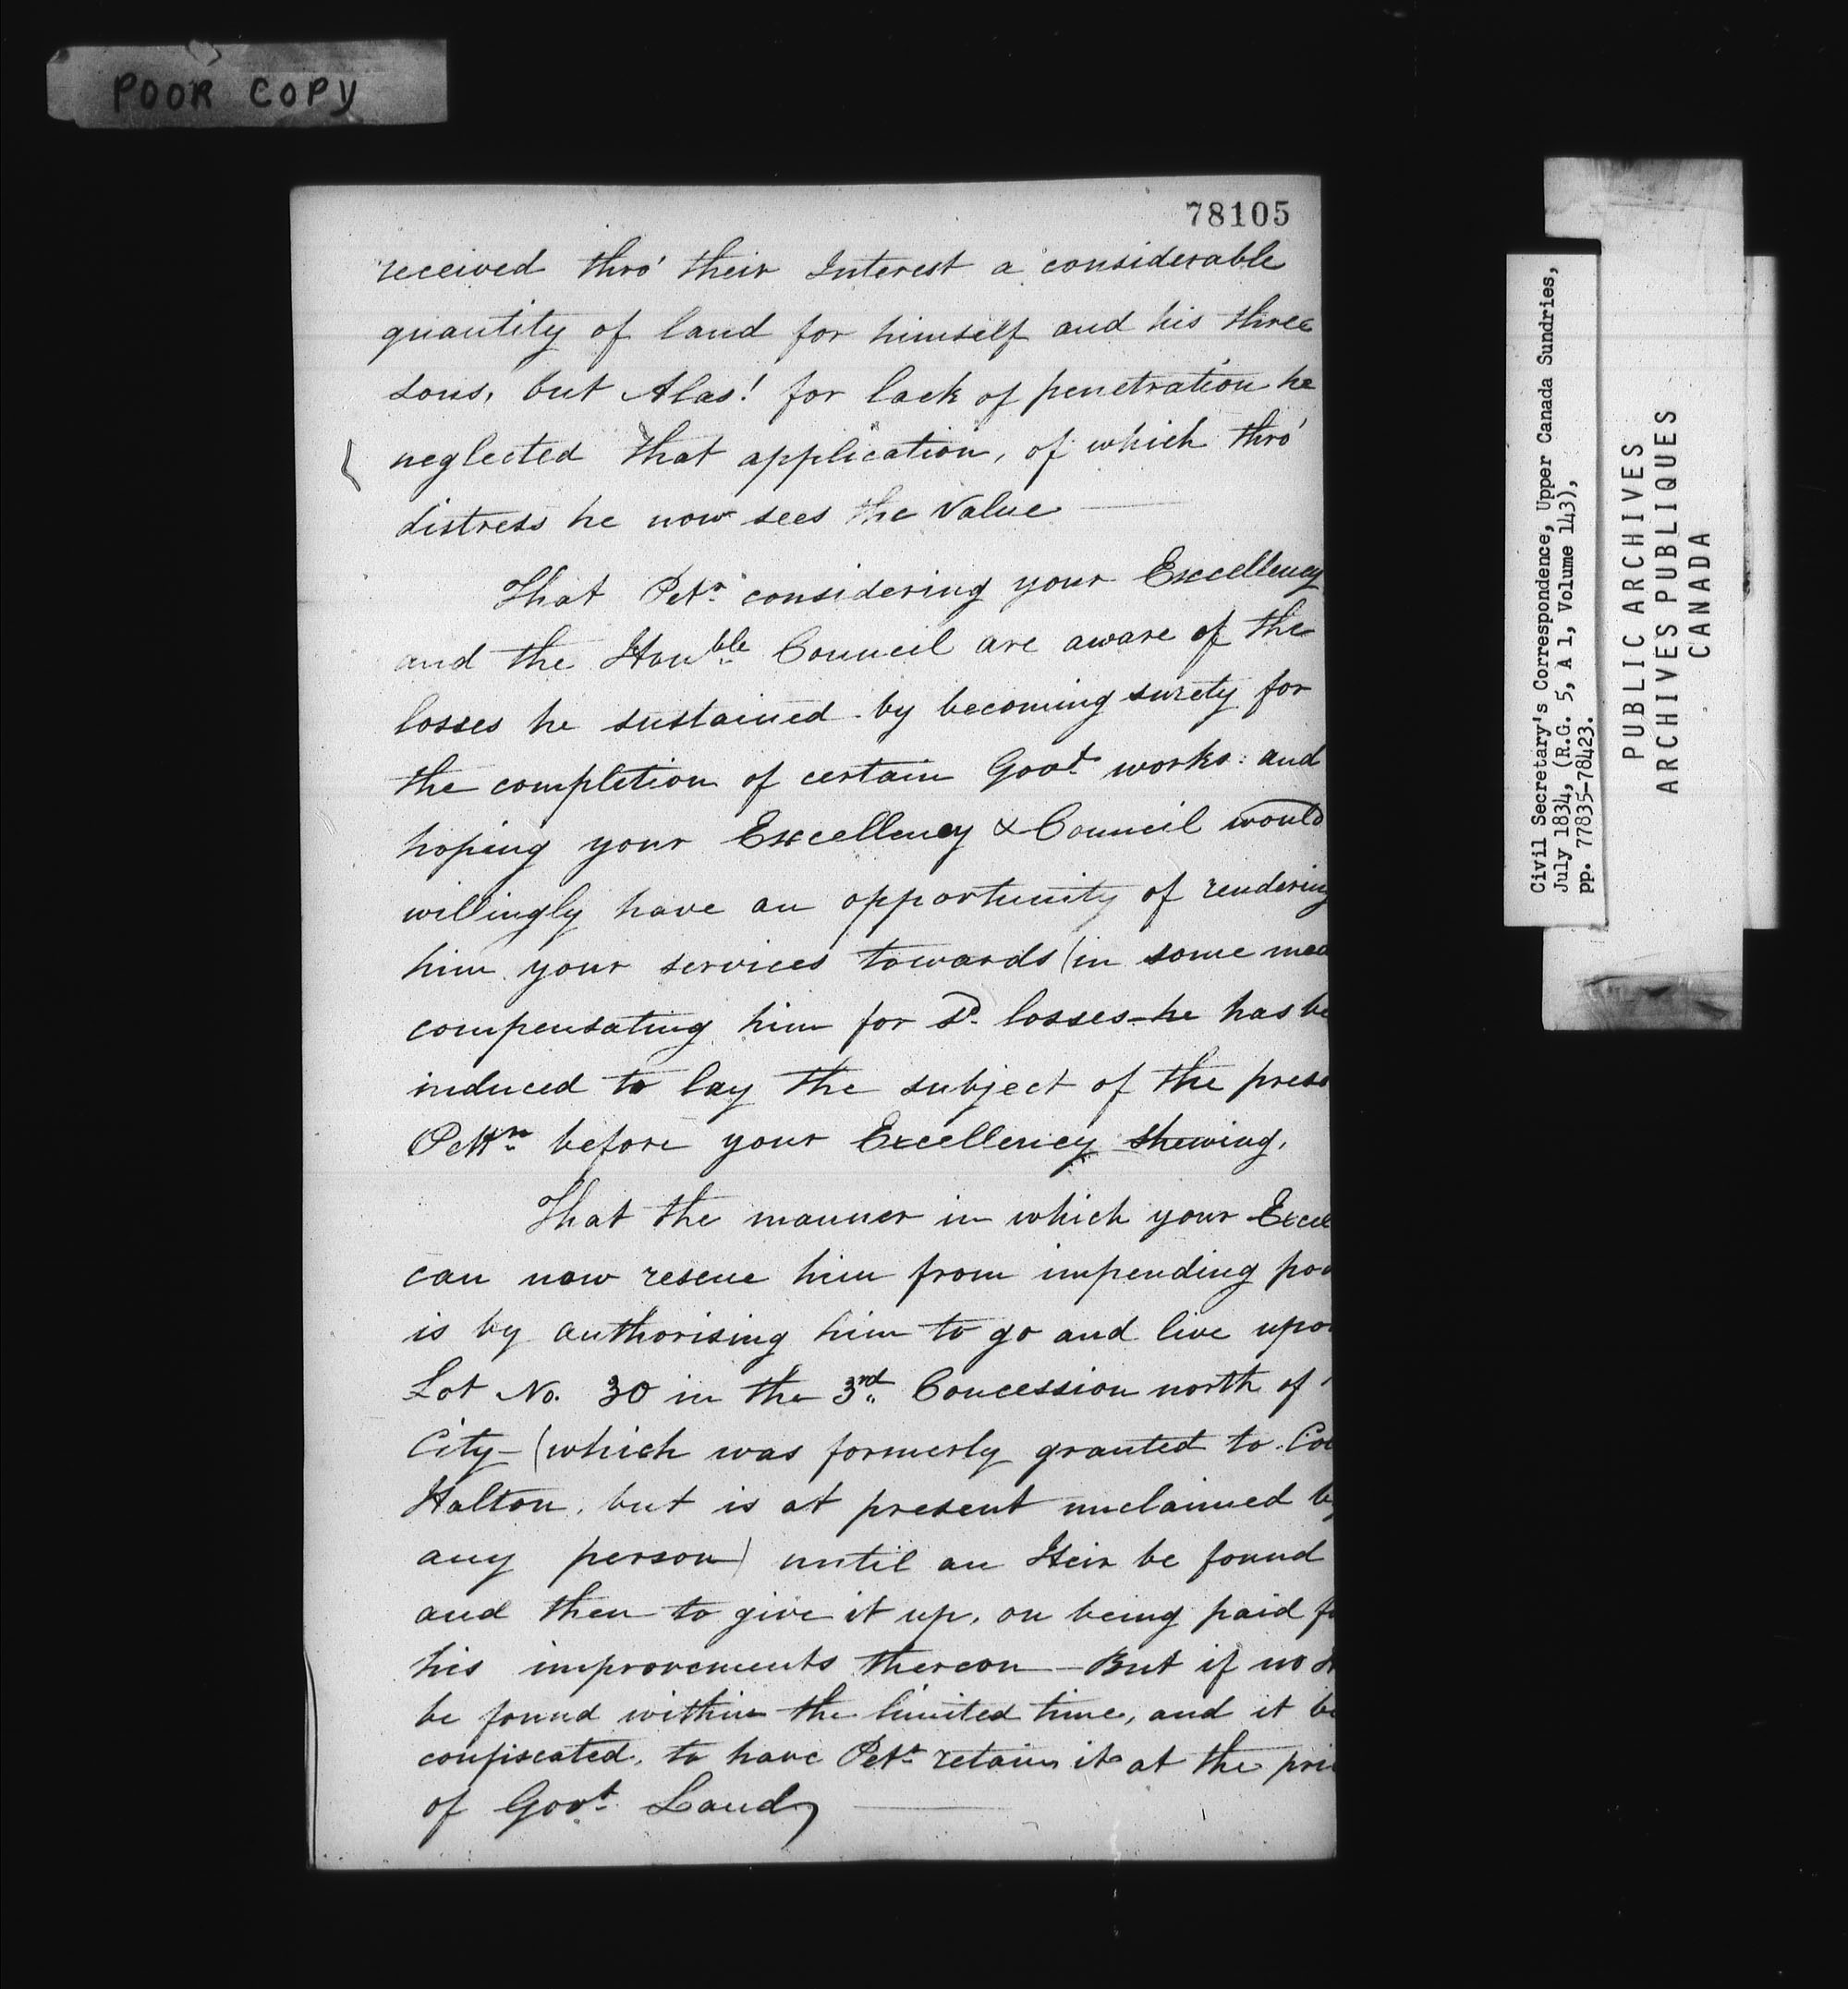 POOR COPY
78105
received thro' their Interest a considerable
quantity of land for himself and his three
sons, but Alas! for lack of penetration he
neglected that application, of which thro'
distress he now sees the Value
That Petr. considering your Excellency
and the Honble Council are aware of the
losses he sustained by becoming surety for
the completion of certain Govt. works: and
hoping your Excellency & Council would
willingly have an opportunity of rendering
him your services towards (in some mea
compensating him for sd. losses - he has be
induced to lay the subject of the prese
Pettn. before your Excellency shewing,
That the manner in which your Excel
can now rescue him from impending pov
is by authorising him to go and live upon
Lot No. 30 in the 3rd. Concession north of
City - (which was formerly granted to Col
Halton, but is at present unclaimed by
any person) until an Heir be found
and then to give it up, on being paid fo
his improvements thereon - But if no H
be found within the limited time, and it be
confiscated, to have Petr. retain it at the pri
of Govt. Land,
Civil Secretary's Correspondence, Upper Canada Sundries,
July 1834, (R.G. 5, A 1, Volume 143),
pp. 77835-78423.
PUBLIC ARCHIVES
ARCHIVES PUBLIQUES
CANADA